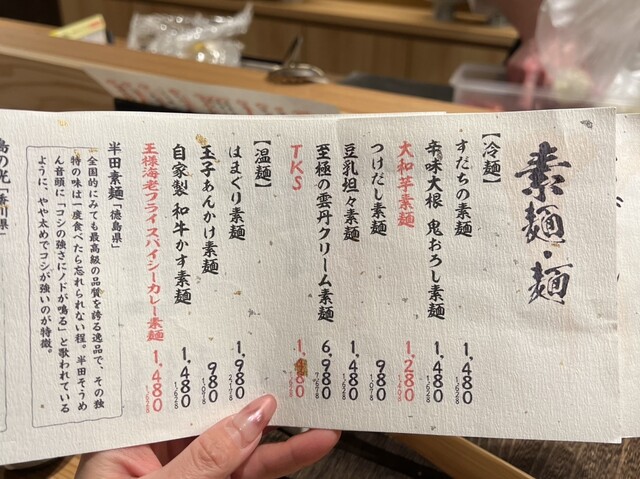 素麺・麺
【冷麺】
すだちの素麺 1,480 1,628
辛味大根 鬼おろし素麺 1,480 1,628
大和芋素麺 1,280 1,408
つけだし素麺 980 1,078
豆乳坦々素麺 1,480 1,628
至極の雲丹クリーム素麺 6,980 7,678
TKS
【温麺】
はまぐり素麺 1,980 2,178
玉子あんかけ素麺 980 1,078
自家製 和牛かす素麺 1,480 1,628
王様海老フライスパイシーカレー素麺 1,480 1,628
半田素麺「徳島県」
全国的にみても最高級の品質を誇る逸品で、その独
特の味は一度食べたら忘れられない程。半田そうめ
ん音頭に「コシの強さにノドが鳴る」と歌われている
ように、やや太めでコシが強いのが特徴。
島の光「香川県」